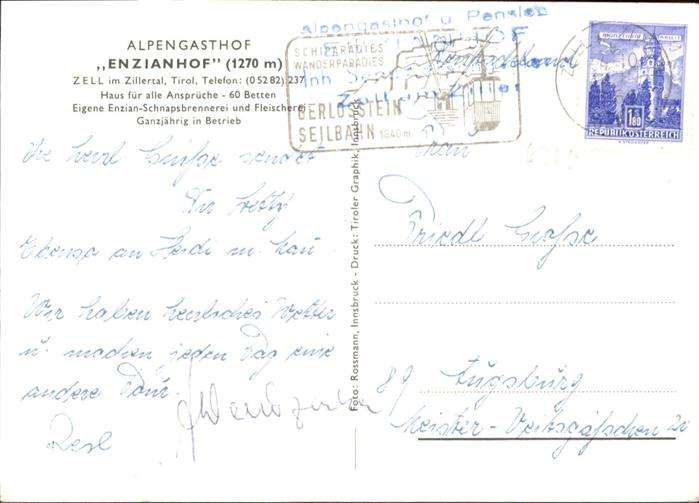 ALPENGASTHOF
„ENZIANHOF" (1270 m)
ZELL im Zillertal, Tirol, Telefon: (0 52 82) 237
Haus für alle Ansprüche - 60 Betten
Eigene Enzian-Schnapsbrennerei und Fleischerei
Ganzjährig in Betrieb
Alpengasthof u. Pension
SCHIPARADIES
WANDERPARADIES
GERLOSSTEIN
SEILBAHN 1840m
1.80
REPUBLIK ÖSTERREICH
Foto: Rossmann, Innsbruck - Druck: Tiroler Graphik, Innsbruck
herzl. Grüße sendet
Dir Hetty
Ebenso an Heidi u.
Wir haben herrliches Wetter
u. machen jeden Tag eine
andere Tour.
Resl
Frau
Friedl Große
89 Augsburg
Meister-Veitsgäßchen